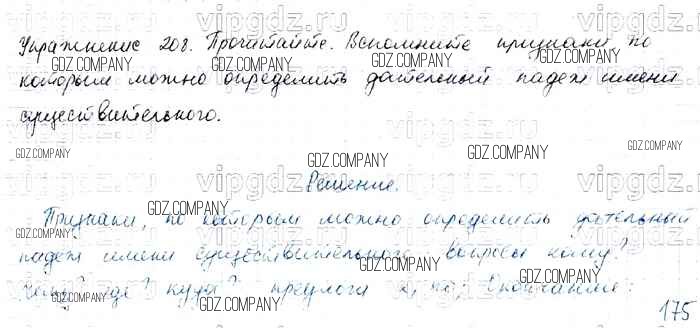 Упражнение 208. Прочитайте. Вспомните признаки по
которым можно определить дательный падеж имени
существительного.
Решение.
Признаки, по которым можно определить дательный
падеж имени существительного вопросы кому?
чему? где? куда? предлоги к, по; Окончание:
175
vipgdz.ru
GDZ.COMPANY